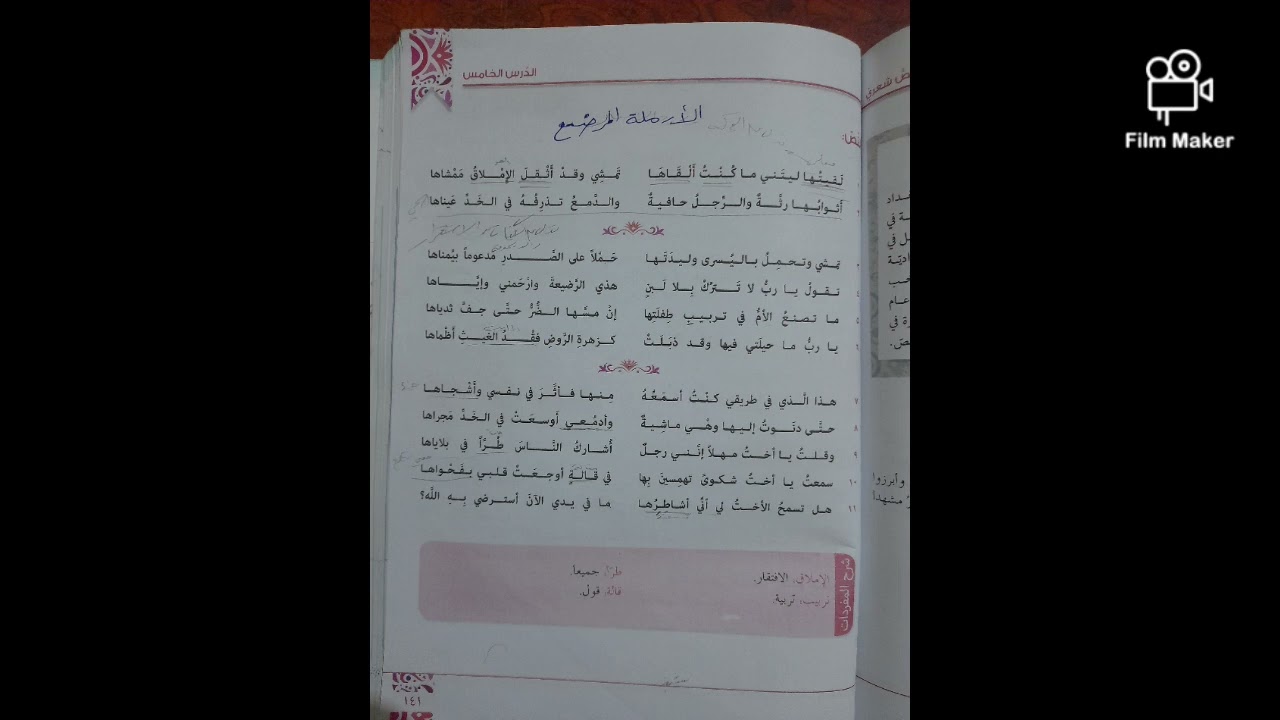 الدرس الخامس
الأرملة المرضع
لَقيتُها ليتَني ما كُنْتُ أَلْقَاهَا تَمْشِي وقدْ أَثْقلَ الإِمْلاقُ مَمْشاها
أَثوابُها رثَّةٌ والرِّجلُ حافيةٌ والدَّمعُ تذرِفُهُ في الخَدِّ عَيناها
تمشي وتحمِلُ باليُسرى وليدَتَها حَمْلاً على الصَّدرِ مَدعوماً بيُمناها
تقولُ يا ربُّ لا تَترُكْ بِلا لَبنٍ هذي الرَّضيعةَ وارْحَمني وإيَّاها
ما تصنعُ الأمُّ في تربيبِ طِفلَتِها إنْ مسَّها الضُّرُّ حتَّى جفَّ ثدياها
يا ربُّ ما حيلَتي فيها وقد ذبَلَتْ كزهرةِ الرَّوضِ فقْدُ الغَيثِ أظْماها
٧ هذا الَّذي في طريقي كنْتُ أسمَعُهُ مِنها فأثَّرَ في نفسي وأَشْجاها
٨ حتَّى دنَوتُ إليها وهْي ماشِيةٌ وأدمُعي أوسعَتْ في الخَدِّ مَجراها
٩ وقلتُ يا أختُ مهلاً إنَّني رجلٌ أُشاركُ النَّاسَ طُرّاً في بلاياها
١٠ سمعتُ يا أختُ شكوىً تهمِسينَ بِها في قالةٍ أوجعَتْ قلبي بفَحْواها
١١ هل تسمحُ الأختُ لي أنّي أشاطِرُها ما في يدي الآنَ أسترضي بِهِ اللَّه؟
شرح المفردات
الإملاق: الافتقار. طرّاً: جميعا.
تربيب: تربية. قالة: قول.
١٤١
Film Maker